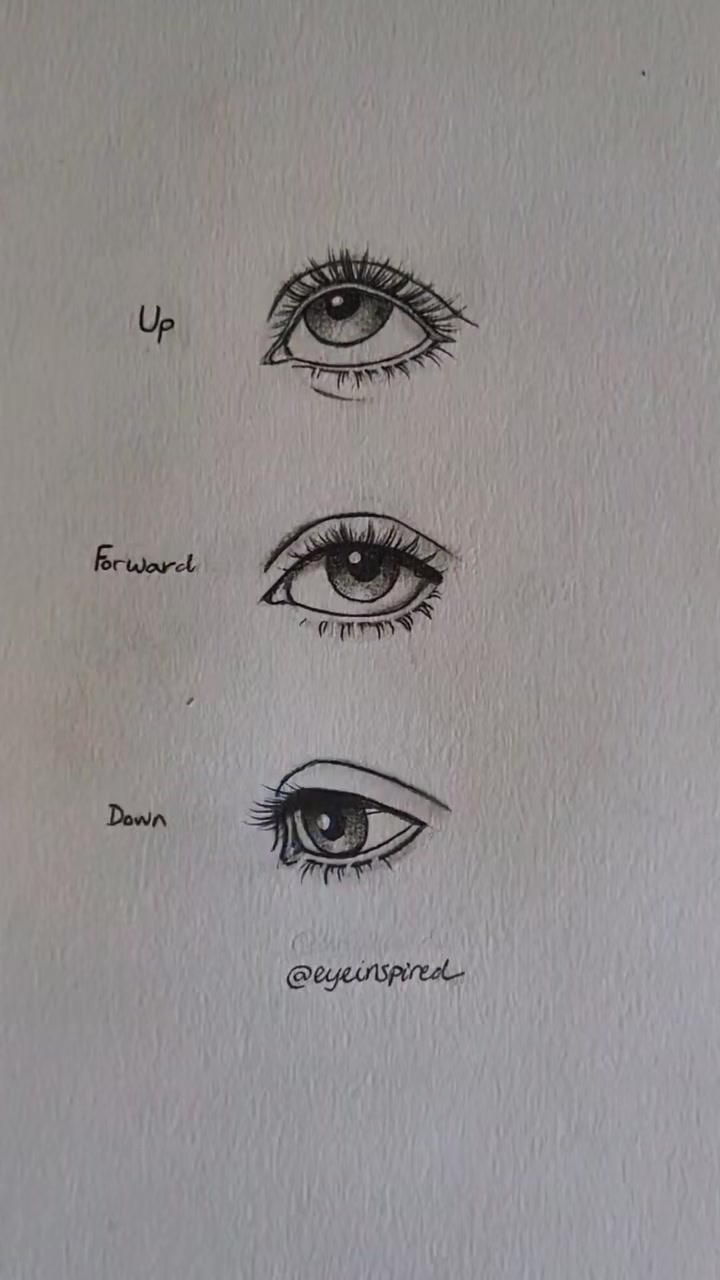 Up
Forward
Down
@eyeinspired